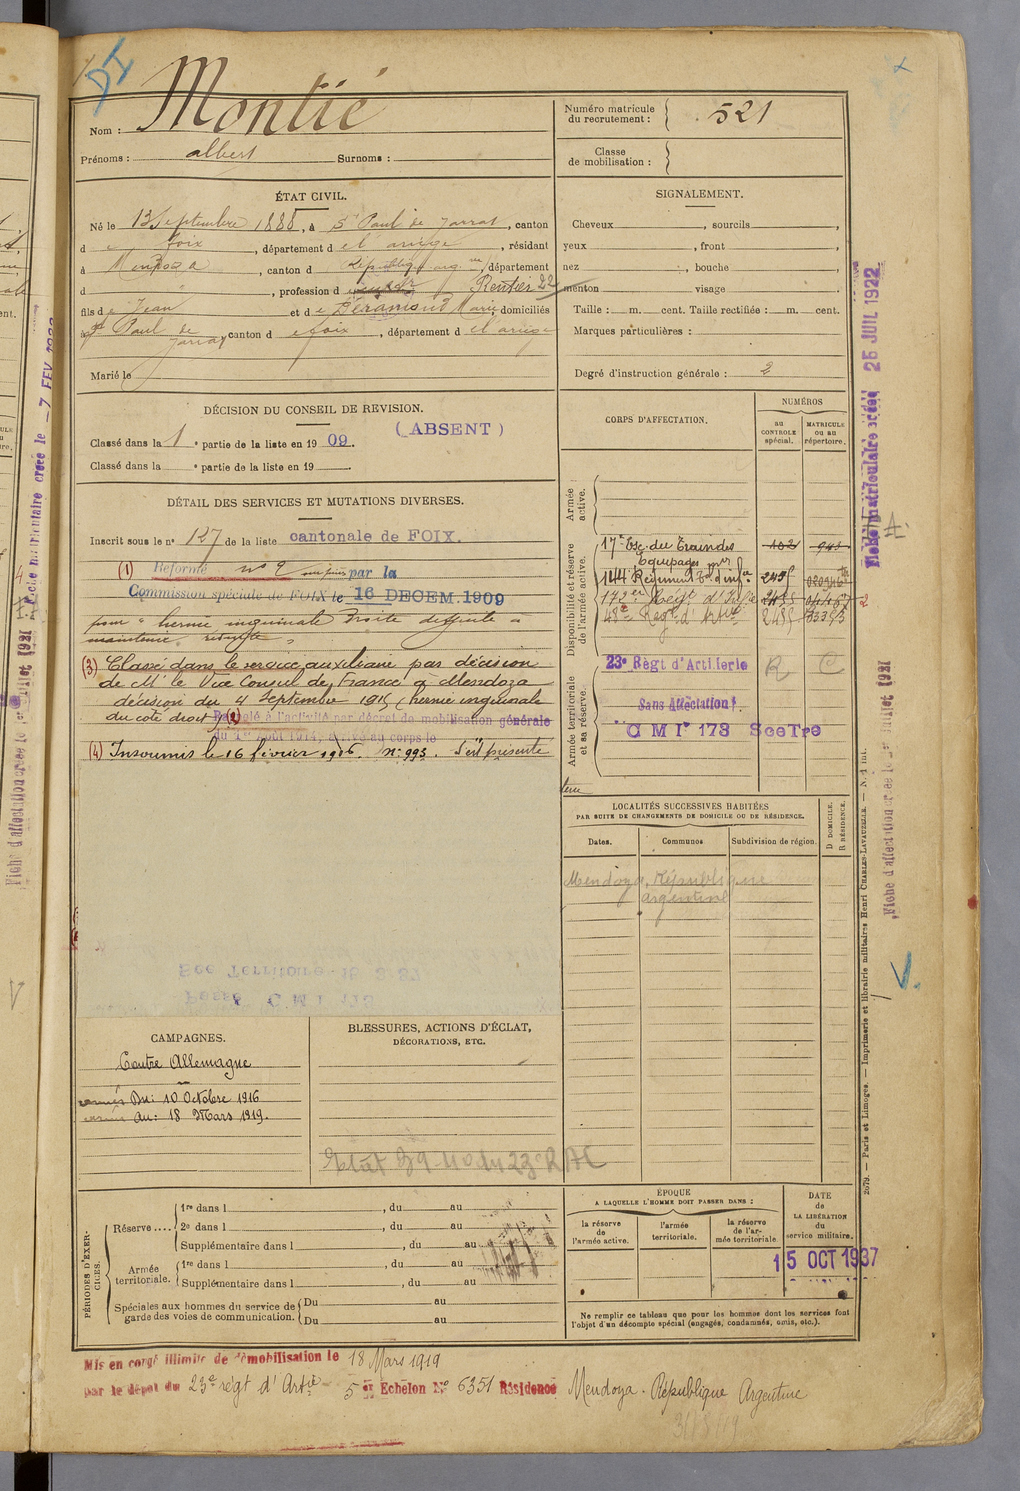 DI
Nom : Montié
Prénoms : albert Surnoms :
Numéro matricule
du recrutement : 521
Classe
de mobilisation :
ÉTAT CIVIL.
Né le 13 Septembre 1888, à St Paul de Jarrat, canton
d e foix, département d el ariège, résidant
à Mendoza, canton d République arg. ne, département
d , profession d Rentier 22
fils d e Jean et d e Déramond Marie, domiciliés
à St Paul de
Jarrat canton d e foix, département d el ariège
Marié le
SIGNALEMENT.
Cheveux , sourcils ,
yeux , front ,
nez , bouche ,
menton visage
Taille : m. cent. Taille rectifiée : m. cent.
Marques particulières :
Degré d'instruction générale : 2
DÉCISION DU CONSEIL DE REVISION.
Classé dans la 1 e partie de la liste en 19 09. (ABSENT)
Classé dans la e partie de la liste en 19
DÉTAIL DES SERVICES ET MUTATIONS DIVERSES.
Inscrit sous le n° 127 de la liste cantonale de FOIX.
(1) Réformé n° 2 par la
Commission spéciale de FOIX le 16 DECEM. 1909
pour " hernie inguinale droite difficile a
maintenir réduite "
(3) Classé dans le service auxiliaire par décision
de Mr le Vice Consul de France à Mendoza
décision du 4 Septembre 1915 (hernie inguinale
du coté droit) (2) Rappelé à l'activité par décret de mobilisation générale
du 1er août 1914, arrivé au corps le
(4) Insoumis le 16 février 1916. n° 993. S'est présenté
CORPS D'AFFECTATION.
NUMÉROS
au
CONTROLE
spécial.
MATRICULE
ou au
répertoire.
Armée
active.
Disponibilité et réserve
de l'armée active.
Armée territoriale
et sa réserve.
17e Esc. du Train des
Equipages mres 102 943
144 Régiment d'infie 245
172e Regt d'Infie
48e Regt d'Artie 2485
23e Règt d'Artillerie R C
Sans Affectation.
C M Ie 173 SceTre
LOCALITÉS SUCCESSIVES HABITÉES
PAR SUITE DE CHANGEMENTS DE DOMICILE OU DE RÉSIDENCE.
Dates. Communes Subdivision de région.
D DOMICILE.
R RÉSIDENCE.
Mendoza, République
argentine
See Territoire 16.3.37
Passé C M I 173
CAMPAGNES.
Contre Allemagne
Du : 10 Octobre 1916
au : 18 Mars 1919.
BLESSURES, ACTIONS D'ÉCLAT,
DÉCORATIONS, ETC.
PÉRIODES D'EXER-
CICES.
Réserve ....
1re dans l , du au
2e dans l , du au
Supplémentaire dans l , du au
Armée
territoriale.
1re dans l , du au
Supplémentaire dans l , du au
Spéciales aux hommes du service de
garde des voies de communication.
Du au
Du au
ÉPOQUE
A LAQUELLE L'HOMME DOIT PASSER DANS :
la réserve
de
l'armée active.
l'armée
territoriale.
la réserve
de l'ar-
mée territoriale
DATE
de
LA LIBÉRATION
du
service militaire.
15 OCT 1937
Ne remplir ce tableau que pour les hommes dont les services font
l'objet d'un décompte spécial (engagés, condamnés, omis, etc.).
Mis en congé illimité de démobilisation le 18 Mars 1919
par le dépôt du 23e regt d'Artie 5 er Echelon N° 6351 Résidence Mendoza. République Argentine
Fiche matriculaire créée 25 JUIL 1922
Fiche d'affectation créée le 1er Juillet 1921
2679. — Paris et Limoges. — Imprimerie et librairie militaires Henri CHARLES-LAVAUZELLE.
V.